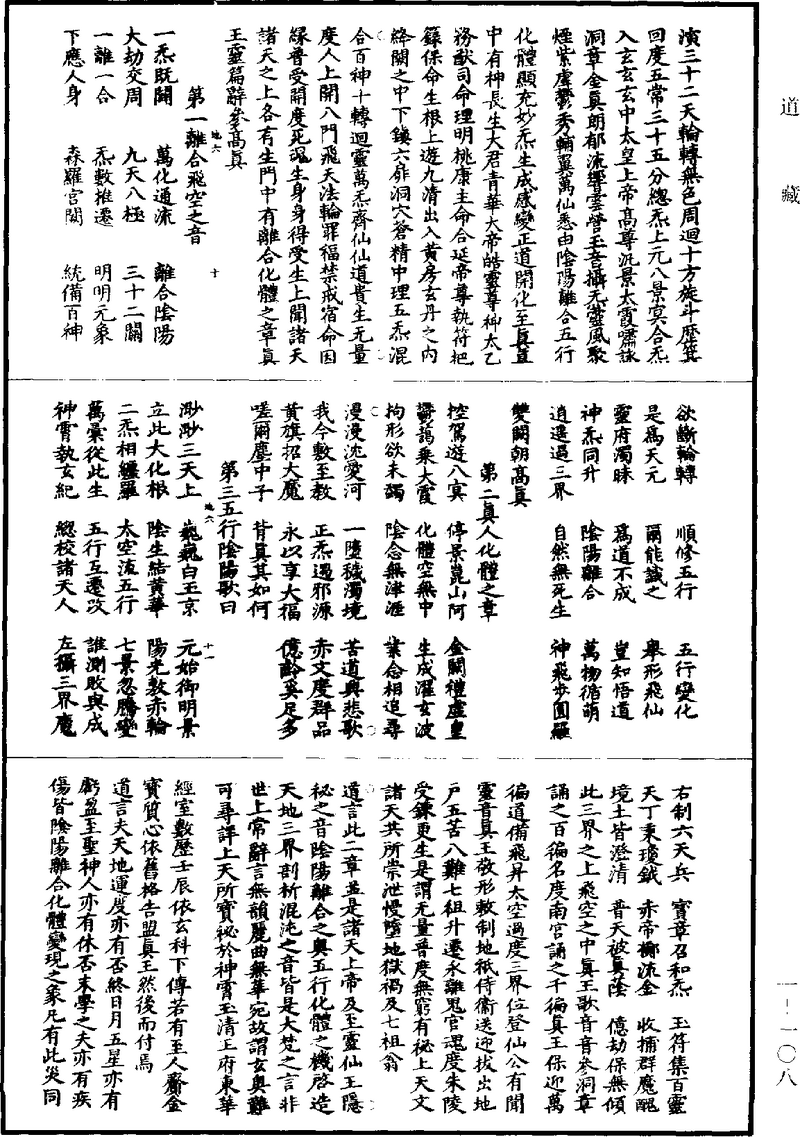 道藏
濱三十二天輪轉無色周迴十方旋斗歷箕
回度五常三十五分總炁上元八景冥合炁
入玄玄玄中太皇上帝高尊汎景太霞嘯詠
洞章金真朗郁流響雲營玉音攝炁靈風聚
煙紫虛鬱秀輔翼萬仙悉由陰陽離合五行
化體顯充妙炁生成感變正道開化至真宜
中有神長生大君青華大帝皓靈尊神太乙
務猷司命理明桃康主命合延帝尊執符把
籙保命生根上遊九清出入黃房玄丹之內
絳闕之中下鎮六府洞穴蒼精中理五炁混
合百神十轉迴靈萬炁齊仙仙道貴生无量
度人上開八門飛天法輪罪福禁戒宿命因
緣普受開度死魂生身身得受生上聞諸天
諸天之上各有生門中有離合化體之章真
王靈篇辭參高真
第一離合飛空之音
一炁既開 萬化通流 離合陰陽
大劫交周 九天八極 三十二關
一離一合 炁數推遷 明明元象
下應人身 森羅宮闕 統備百神
欲斷輪轉 順修五行 五行變化
是為天元 爾能識之 舉形飛仙
靈府濁昧 為道不成 豈知悟道
神炁同升 陰陽離合 萬物循萌
逍遙過三界 自然無死生 神飛步圓羅
雙闕朝高真
第二真人化體之章
控駕遊八冥 停景崑山阿 金闕禮虛皇
鬱藹乘大霞 化體空無中 生成濯玄波
拘形欲未蠲 陰念無津涯 業念相追尋
漫漫沈愛河 一墮穢濁境 苦道興悲歌
我今敷至教 正炁遏邪源 赤文度群品
黃旗招大魔 永以享大福 億齡奚足多
嗟爾塵中子 背真其如何
第三五行陰陽歌曰
渺渺三天上 巍巍白玉京 元始御明景
立此大化根 陰生結黃華 陽光敷赤輪
二炁相纏羅 太空流五行 七景忽騰變
萬彙從此生 五行互遷改 誰測敗與成
神霄執玄紀 總校諸天人 左攝三界魔
右制六天兵 寶章召和炁 玉符集百靈
天丁秉瓊鉞 赤帝擲流金 收捕群魔醜
境土皆澄清 普天被真蔭 億劫保無傾
此三界之上飛空之中真王歌音音參洞章
誦之百徧名度南宮誦之千徧真王保迎萬
徧道備飛昇太空過度三界位登仙公有聞
靈音真王敬形敕制地祇侍衛送迎拔出地
戶五苦八難七祖升遷永離鬼官魂度朱陵
受鍊更生是謂无量普度無窮有秘上天文
諸天共所崇泄慢墮地獄禍及七祖翁
道言此二章並是諸天上帝及至靈仙王隱
秘之音陰陽離合之奧五行化體之機啓造
天地三界剖析混沌之音皆是大梵之言非
世上常辭言無韻麗曲無華宛故謂玄奧難
可尋詳上天所寶秘於神霄玉清王府東華
經室數歷壬辰依玄科下傳若有至人齎金
寶質心依舊格告盟真王然後而付焉
道言夫天地運度亦有否終日月五星亦有
虧盈至聖神人亦有休否末學之夫亦有疾
傷皆陰陽離合化體變現之象凡有此災同
一-一〇八